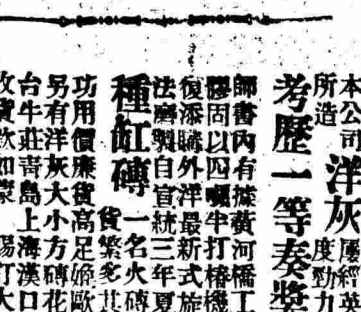 本公司洋灰屢經英
所造 度勁力
考歷一等奏獎
師書內有據黃河橋工
膠固以四噸半打樁機
復添購外洋最新式旋
法磨製自宣統三年夏
種缸磚 一名火磚
貨繁多其
功用價廉貨高足媲歐
另有洋灰大小方磚花
台牛莊青島上海漢口
收貨欵如蒙 賜訂大